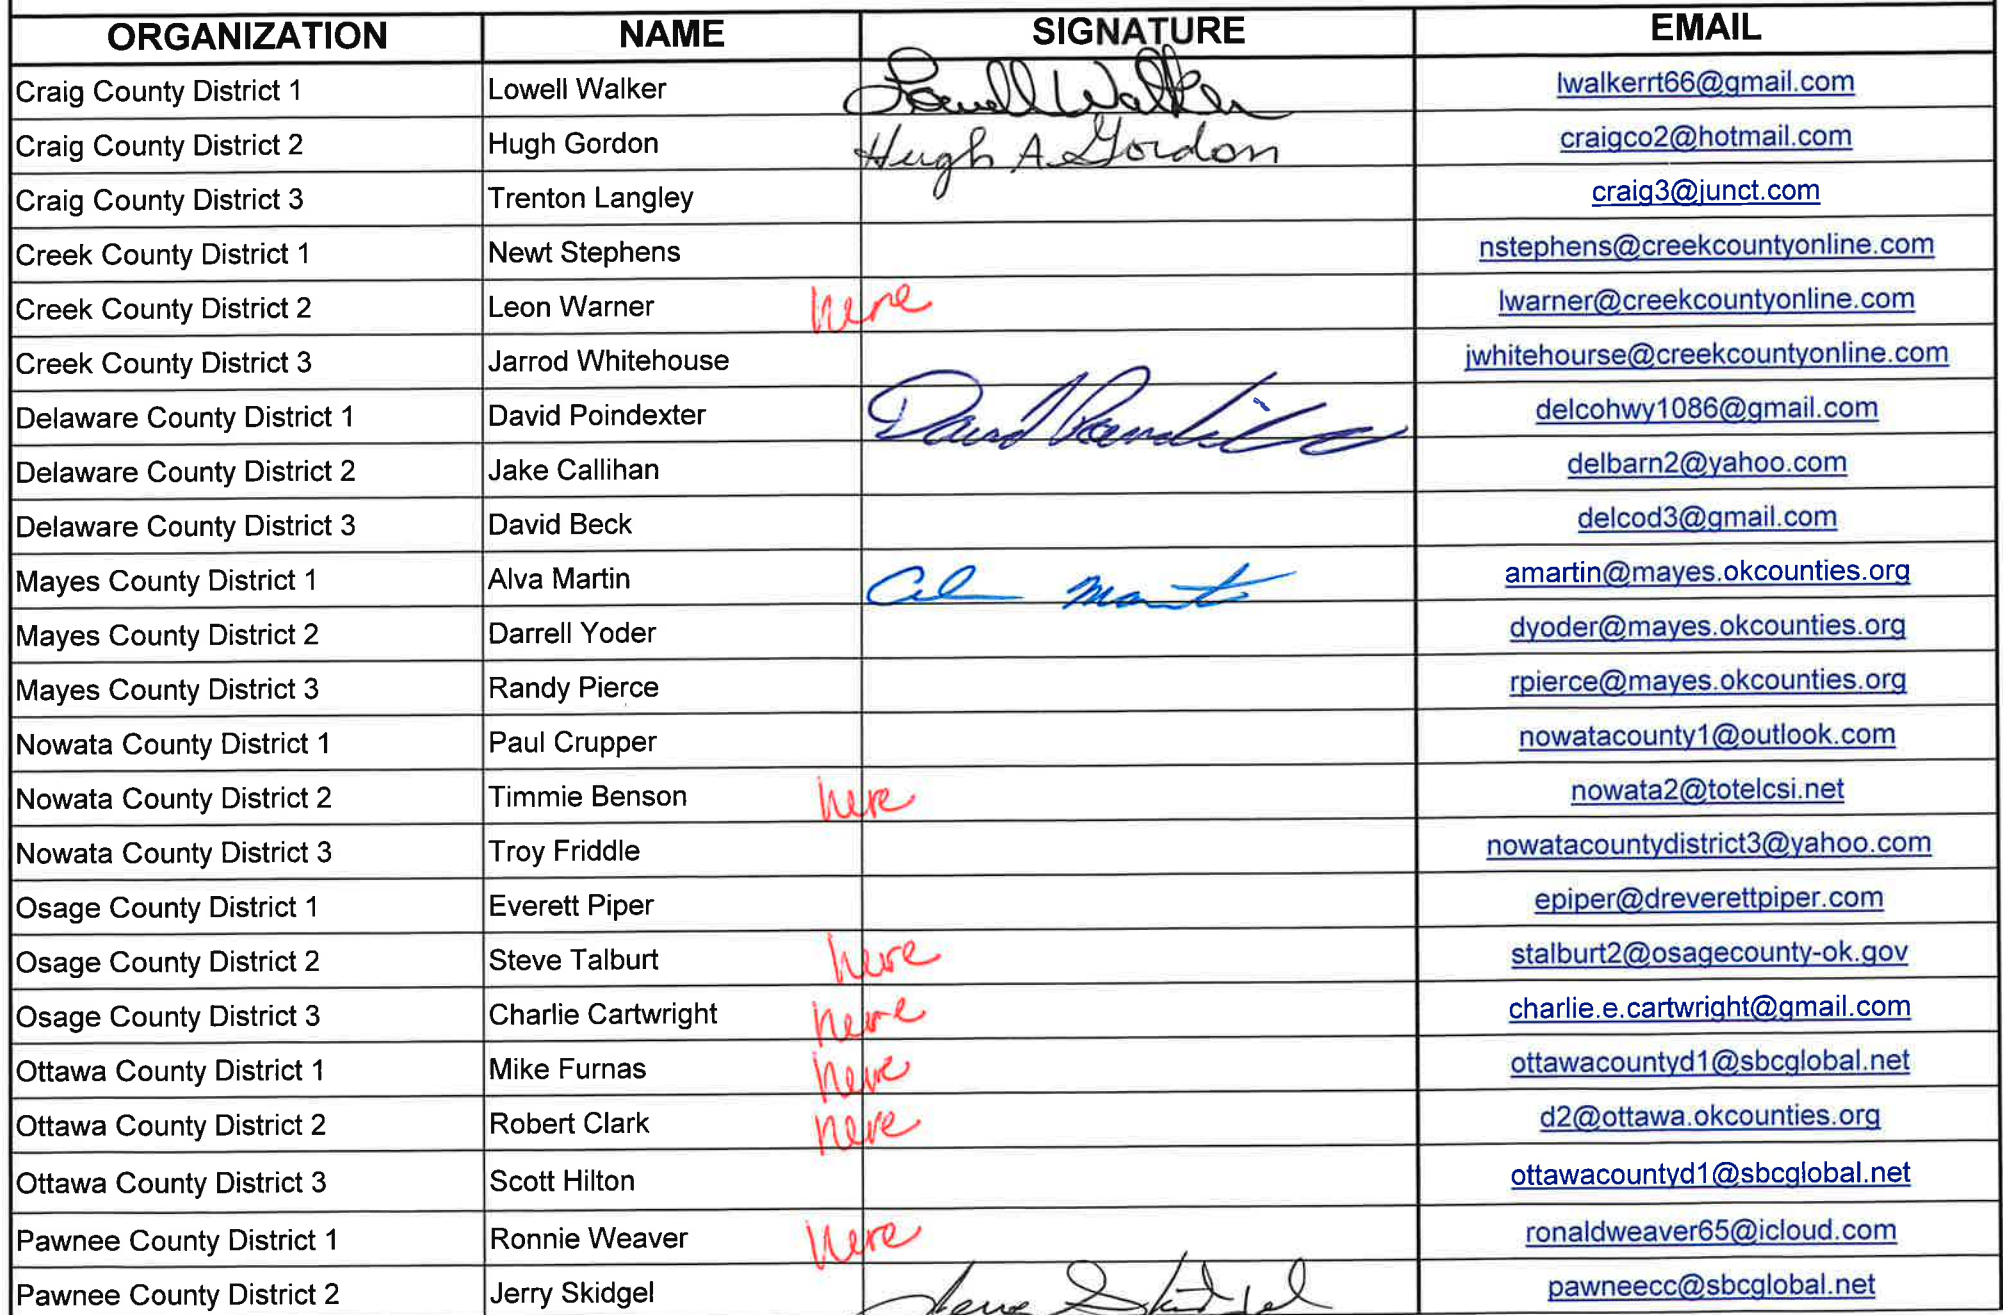 ORGANIZATION NAME SIGNATURE EMAIL
Craig County District 1 Lowell Walker Lowell Walker lwalkerrt66@gmail.com
Craig County District 2 Hugh Gordon Hugh A. Gordon craigco2@hotmail.com
Craig County District 3 Trenton Langley craig3@junct.com
Creek County District 1 Newt Stephens nstephens@creekcountyonline.com
Creek County District 2 Leon Warner here lwarner@creekcountyonline.com
Creek County District 3 Jarrod Whitehouse jwhitehourse@creekcountyonline.com
Delaware County District 1 David Poindexter David delcohwy1086@gmail.com
Delaware County District 2 Jake Callihan delbarn2@yahoo.com
Delaware County District 3 David Beck delcod3@gmail.com
Mayes County District 1 Alva Martin amartin@mayes.okcounties.org
Mayes County District 2 Darrell Yoder dyoder@mayes.okcounties.org
Mayes County District 3 Randy Pierce rpierce@mayes.okcounties.org
Nowata County District 1 Paul Crupper nowatacounty1@outlook.com
Nowata County District 2 Timmie Benson here nowata2@totelcsi.net
Nowata County District 3 Troy Friddle nowatacountydistrict3@yahoo.com
Osage County District 1 Everett Piper epiper@dreverettpiper.com
Osage County District 2 Steve Talburt here stalburt2@osagecounty-ok.gov
Osage County District 3 Charlie Cartwright here charlie.e.cartwright@gmail.com
Ottawa County District 1 Mike Furnas here ottawacountyd1@sbcglobal.net
Ottawa County District 2 Robert Clark here d2@ottawa.okcounties.org
Ottawa County District 3 Scott Hilton ottawacountyd1@sbcglobal.net
Pawnee County District 1 Ronnie Weaver here ronaldweaver65@icloud.com
Pawnee County District 2 Jerry Skidgel Skidgel pawneecc@sbcglobal.net